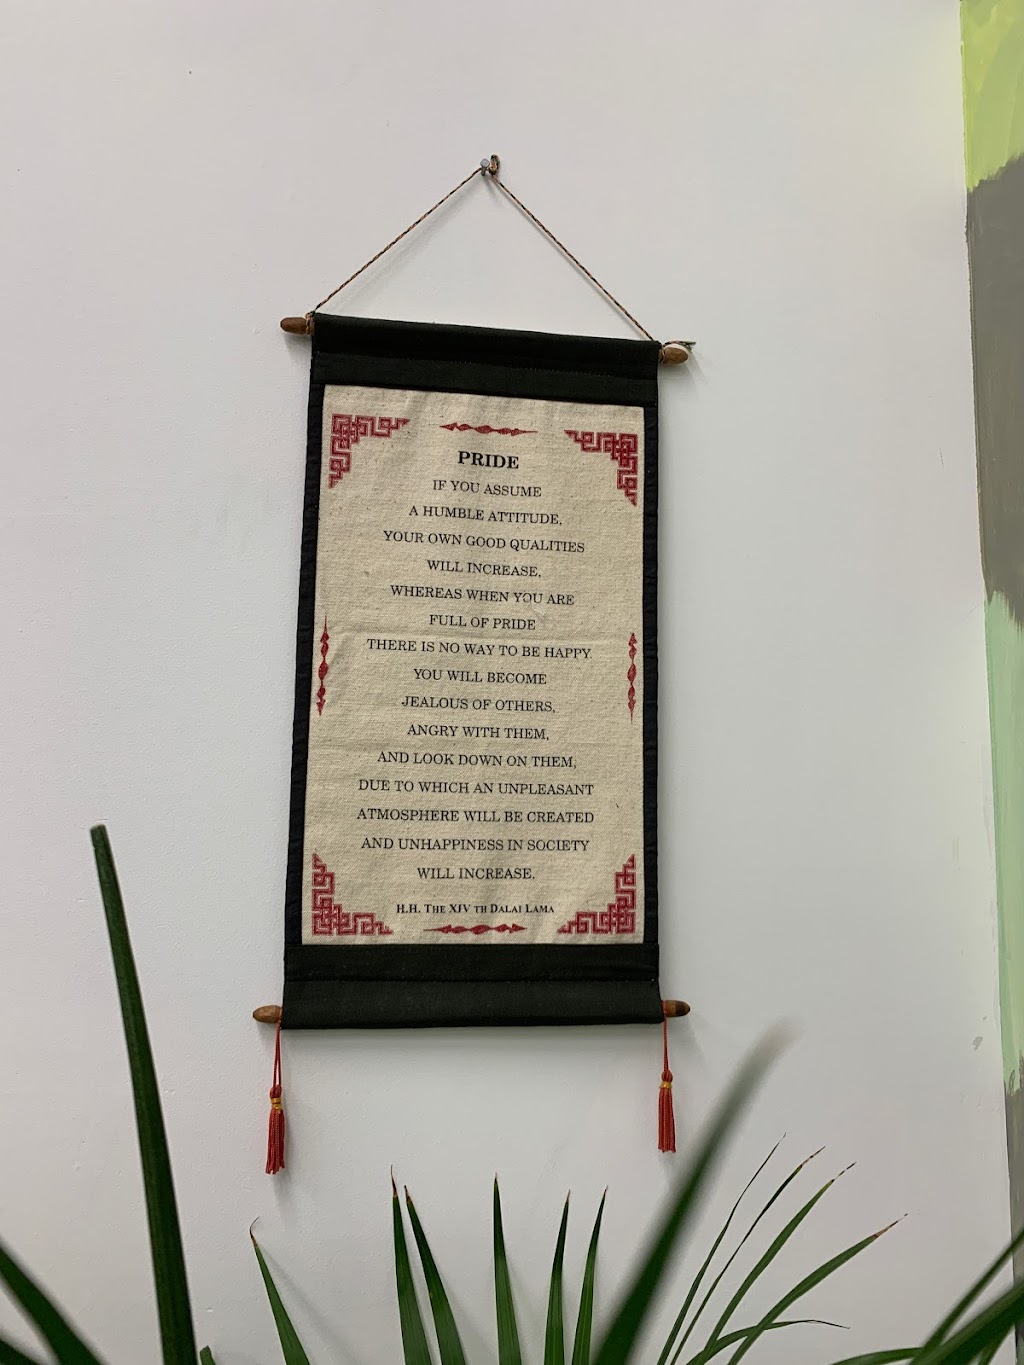 PRIDE
IF YOU ASSUME
A HUMBLE ATTITUDE,
YOUR OWN GOOD QUALITIES
WILL INCREASE,
WHEREAS WHEN YOU ARE
FULL OF PRIDE
THERE IS NO WAY TO BE HAPPY.
YOU WILL BECOME
JEALOUS OF OTHERS,
ANGRY WITH THEM,
AND LOOK DOWN ON THEM,
DUE TO WHICH AN UNPLEASANT
ATMOSPHERE WILL BE CREATED
AND UNHAPPINESS IN SOCIETY
WILL INCREASE.
H.H. THE XIV TH DALAI LAMA